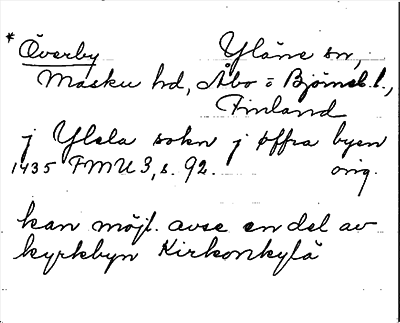 * Överby Yläne sn,
Masku hd, Åbo o Björneb. l.,
Finland
j Ylela sokn j offra byen
1435 FMU 3, s. 92. orig.
kan möjl. avse en del av
kyrkbyn Kirkonkylä